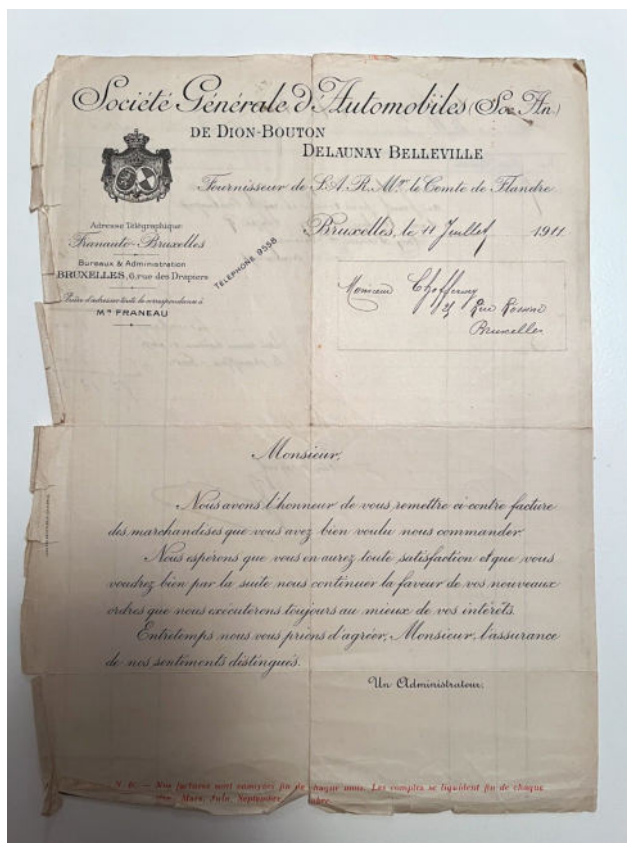 Société Générale d'Automobiles (Soc. An.)
DE DION-BOUTON
DELAUNAY BELLEVILLE
Fournisseur de S.A.R. Mgr le Comte de Flandre
Adresse Télégraphique
Franauto-Bruxelles
Bureaux & Administration
BRUXELLES, 6, rue des Drapiers
TÉLÉPHONE 9558
Prière d'adresser toute la correspondance à
Mr FRANEAU
Bruxelles, le 11 Juillet 1911
Monsieur
Rue
Bruxelles
Monsieur,
Nous avons l'honneur de vous remettre ci-contre facture
des marchandises que vous avez bien voulu nous commander.
Nous espérons que vous en aurez toute satisfaction et que vous
voudrez bien par la suite nous continuer la faveur de vos nouveaux
ordres que nous exécuterons toujours au mieux de vos intérêts.
Entretemps nous vous prions d'agréer, Monsieur, l'assurance
de nos sentiments distingués.
Un Administrateur,
N. B. — Nos factures sont envoyées fin de chaque mois. Les comptes se liquident fin de chaque
Mars, Juin, Septembre